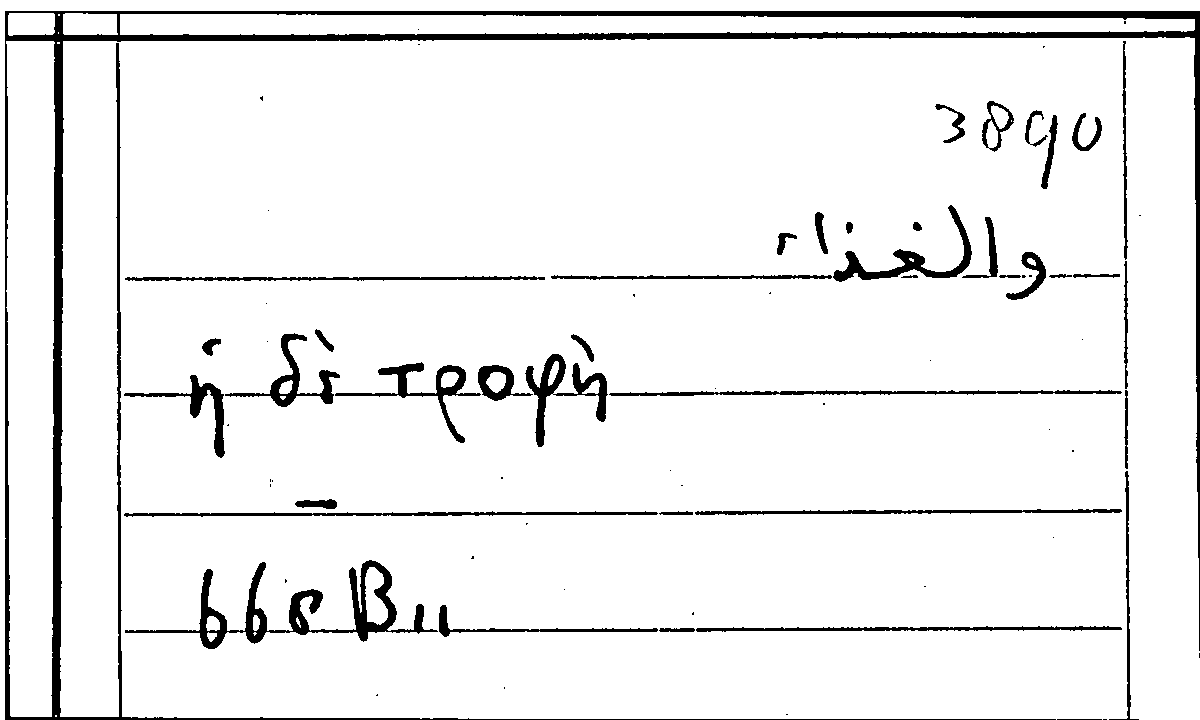 3890
والغذاء
ἡ δὲ τροφὴ
–
668 B 11